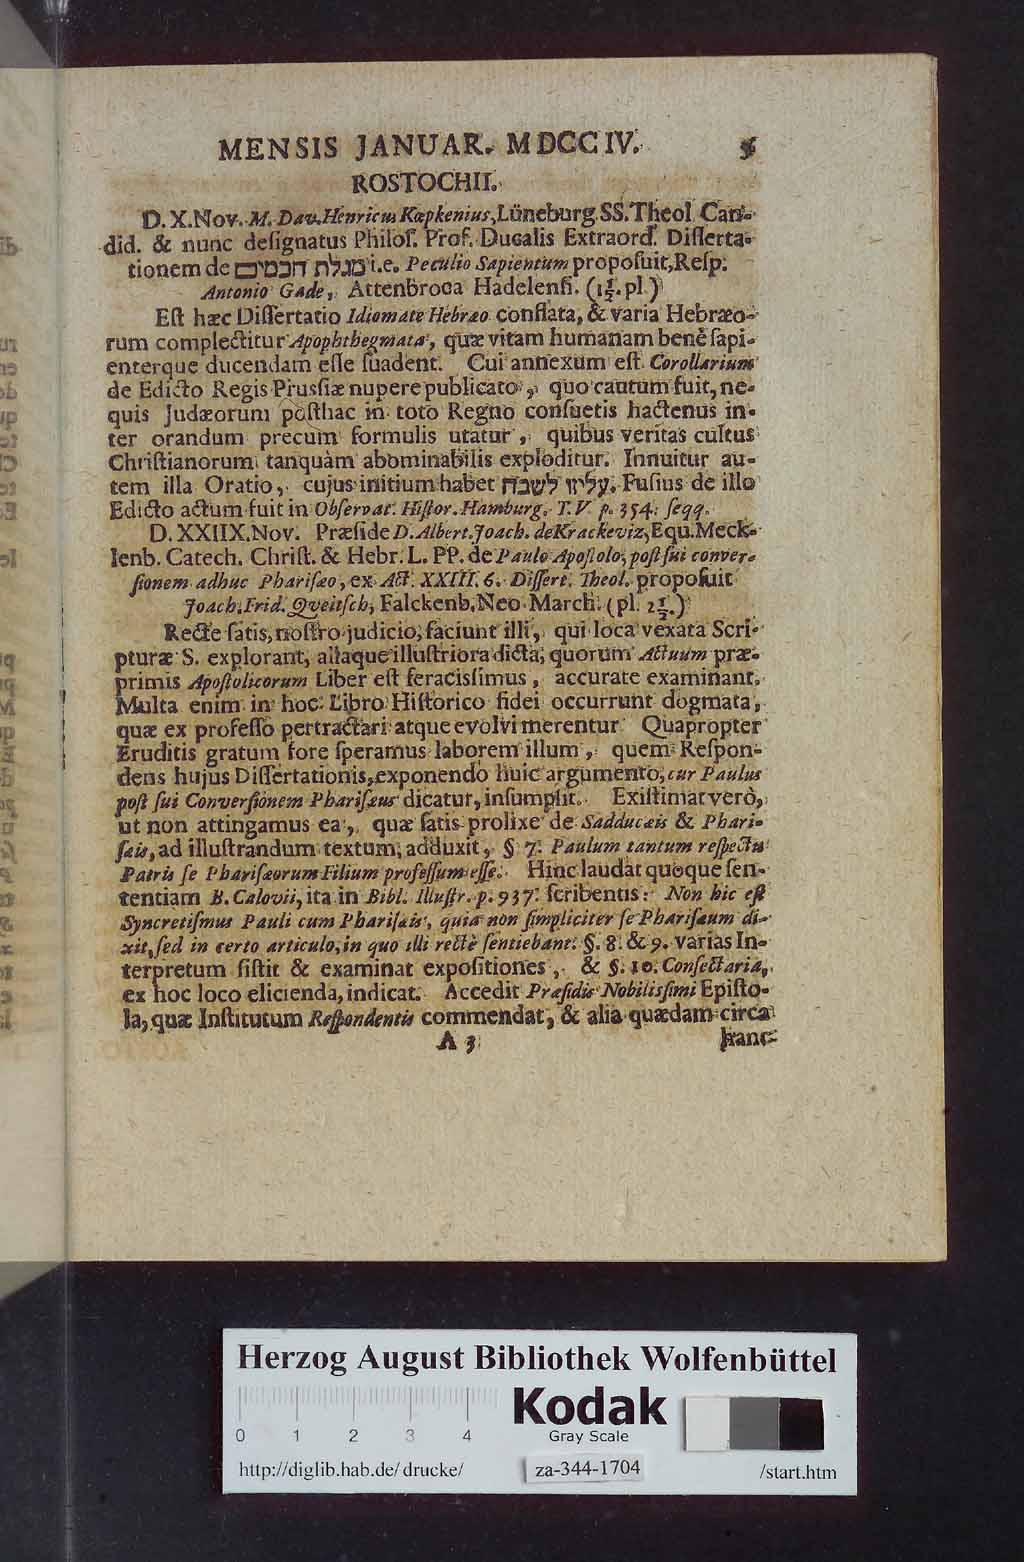 MENSIS JANUAR. MDCCIV. 5
ROSTOCHII.
D. X. Nov. M. Dav. Henricus Kœpkenius, Lüneburg. SS. Theol. Can-
did. & nunc deſignatus Philoſ. Prof. Ducalis Extraord. Diſſerta-
tionem de סגלת חכמים i. e. Peculio Sapientum propoſuit, Reſp.
Antonio Gade, Attenbroca Hadelenſi. (1½. pl.)
Eſt hæc Diſſertatio Idiomate Hebræo conflata, & varia Hebræo-
rum complectitur Apophthegmata, quæ vitam humanam benè ſapi-
enterque ducendam eſſe ſuadent. Cui annexum eſt Corollarium
de Edicto Regis Prusſiæ nupere publicato, quo cautum fuit, ne-
quis Judæorum poſthac in toto Regno conſuetis hactenus in-
ter orandum precum formulis utatur, quibus veritas cultus
Chriſtianorum tanquàm abominabilis exploditur. Innuitur au-
tem illa Oratio, cujus initium habet עלינו לשבח. Fuſius de illo
Edicto actum fuit in Obſervat. Hiſtor. Hamburg. T. V. p. 354. ſeqq.
D. XXIIX. Nov. Præſide D. Albert. Joach. de Krackeviz, Equ. Meck-
lenb. Catech. Chriſt. & Hebr. L. PP. de Paulo Apoſtolo, poſt ſui conver-
ſionem adhuc Phariſæo, ex Act. XXIII. 6. Diſſert. Theol. propoſuit
Joach. Frid. Qveitſch, Falckenb. Neo March. (pl. 2½.)
Recte ſatis, noſtro judicio, faciunt illi, qui loca vexata Scri-
pturæ S. explorant, aliaque illuſtriora dicta, quorum Actuum præ-
primis Apoſtolicorum Liber eſt feracisſimus, accurate examinant.
Multa enim in hoc Libro Hiſtorico fidei occurrunt dogmata,
quæ ex profeſſo pertractari atque evolvi merentur. Quapropter
Eruditis gratum fore ſperamus laborem illum, quem Reſpon-
dens hujus Diſſertationis, exponendo huic argumento, cur Paulus
poſt ſui Converſionem Phariſæus dicatur, inſumpſit. Exiſtimat verò,
ut non attingamus ea, quæ ſatis prolixe de Sadducæis & Phari-
ſæis, ad illuſtrandum textum, adduxit, §. 7. Paulum tantum reſpectu
Patris ſe Phariſæorum Filium profeſſum eſſe. Hinc laudat quoque ſen-
tentiam B. Calovii, ita in Bibl. Illuſtr. p. 937. ſcribentis: Non hic eſt
Syncretiſmus Pauli cum Phariſæis, quia non ſimpliciter ſe Phariſæum di-
xit, ſed in certo articulo, in quo illi rectè ſentiebant. §. 8. & 9. varias In-
terpretum ſiſtit & examinat expoſitiones, & §. 10. Conſectaria,
ex hoc loco elicienda, indicat. Accedit Præſidis Nobilisſimi Epiſto-
la, quæ Inſtitutum Reſpondentis commendat, & alia quædam circa
A 3 hanc
Herzog August Bibliothek Wolfenbüttel
0 1 2 3 4
Kodak
Gray Scale
http://diglib.hab.de/drucke/ za-344-1704 /start.htm